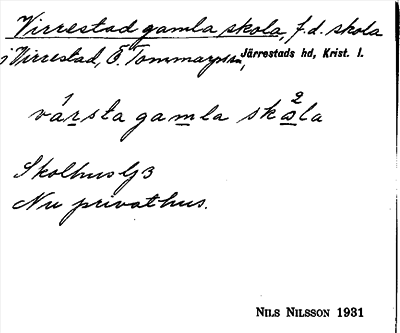 Virrestad gamla skola, f.d. skola
i Virrestad, Ö. Tommarps sn, Järrestads hd, Krist. l.
vársta gamla skòla
Skolhus G3
Nu privathus.
NILS NILSSON 1931